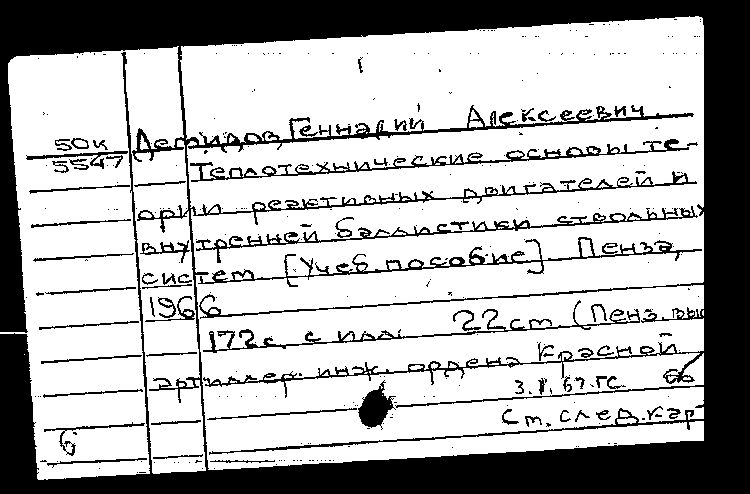 50к
5547
Демидов, Геннадий Алексеевич.
Теплотехнические основы те-
ории реактивных двигателей и
внутренней баллистики ствольных
систем [Учеб. пособие]. Пенза,
1966
172 с. с илл. 22 см (Пенз. выс
артиллер. инж. ордена Красной
3.V.67.ГС 66
См. след. кар
6